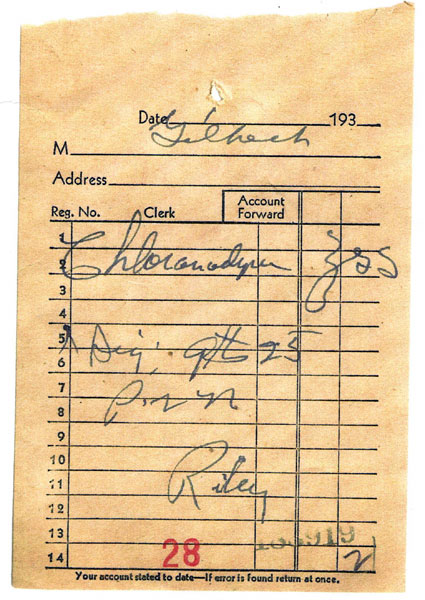 Date 193
Gilbech
M
Address
Reg. No. Clerk Account Forward
1
2 Chloranodyne ʒss
3
4
5
6 Sig: gtts 25
7
8 p.r.n
9
10
11 Riley
12
13
14 28 2
Your account stated to date—If error is found return at once.